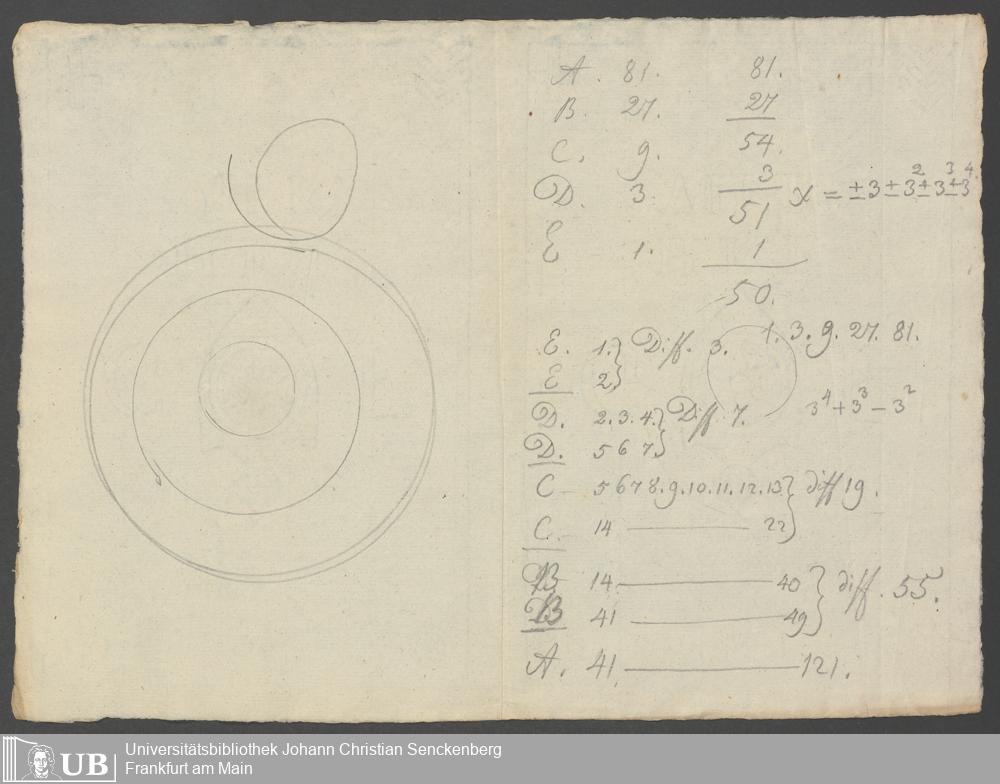 A. 81. 81.
B. 27. 27
C. 9. 54.
D. 3. 3
51 x = ±3 ± 3² ± 3³ ± 3⁴.
E 1. 1
50.
1. 3. 9. 27. 81.
E. 1. } Diff. 3.
E 2 }
D. 2. 3. 4. } Diff 7. 3⁴ + 3³ - 3²
D. 5 6 7 }
C 5 6 7 8. 9. 10. 11. 12. 13 } diff 19.
C. 14 — 22 }
B 14. — 40 } diff. 55.
B 41 — 49 }
A. 41. — 121.
UB Universitätsbibliothek Johann Christian Senckenberg
Frankfurt am Main